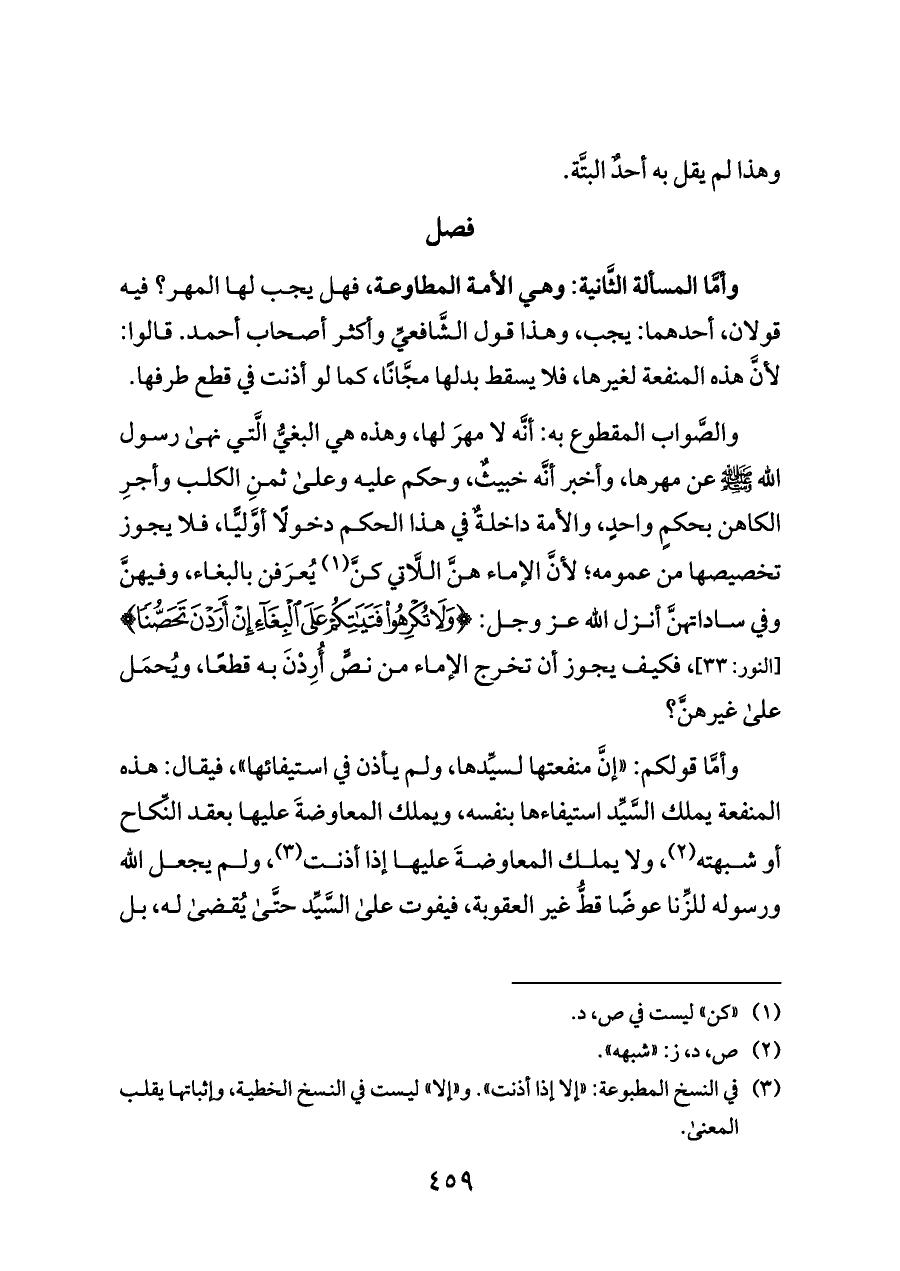 وهذا لم يقل به أحدٌ البتَّة.
فصل
وأمَّا المسألة الثَّانية: وهي الأمة المطاوعة، فهل يجب لها المهر؟ فيه
قولان، أحدهما: يجب، وهذا قول الشَّافعيِّ وأكثر أصحاب أحمد. قالوا:
لأنَّ هذه المنفعة لغيرها، فلا يسقط بدلها مجَّانًا، كما لو أذنت في قطع طرفها.
والصَّواب المقطوع به: أنَّه لا مهرَ لها، وهذه هي البغيُّ الَّتي نهىٰ رسول
الله ﷺ عن مهرها، وأخبر أنَّه خبيثٌ، وحكم عليه وعلىٰ ثمنِ الكلب وأجرِ
الكاهن بحكمٍ واحدٍ، والأمة داخلةٌ في هذا الحكم دخولًا أوَّليًّا، فلا يجوز
تخصيصها من عمومه؛ لأنَّ الإماء هنَّ اللَّاتي كنَّ(١) يُعرَفن بالبغاء، وفيهنَّ
وفي ساداتهنَّ أنزل الله عز وجل: ﴿وَلَا تُكْرِهُوا۟ فَتَيَـٰتِكُمْ عَلَى ٱلْبِغَآءِ إِنْ أَرَدْنَ تَحَصُّنًا﴾
[النور: ٣٣]، فكيف يجوز أن تخرج الإماء من نصٍّ أُرِدْنَ به قطعًا، ويُحمَل
علىٰ غيرهنَّ؟
وأمَّا قولكم: «إنَّ منفعتها لسيِّدها، ولم يأذن في استيفائها»، فيقال: هذه
المنفعة يملك السَّيِّد استيفاءها بنفسه، ويملك المعاوضةَ عليها بعقد النِّكاح
أو شبهته(٢)، ولا يملك المعاوضةَ عليها إذا أذنت(٣)، ولم يجعل الله
ورسوله للزِّنا عوضًا قطُّ غير العقوبة، فيفوت علىٰ السَّيِّد حتَّىٰ يُقضىٰ له، بل
(١) «كن» ليست في ص، د.
(٢) ص، د، ز: «شبهه».
(٣) في النسخ المطبوعة: «إلا إذا أذنت». و«إلا» ليست في النسخ الخطية، وإثباتها يقلب
المعنىٰ.
٤٥٩